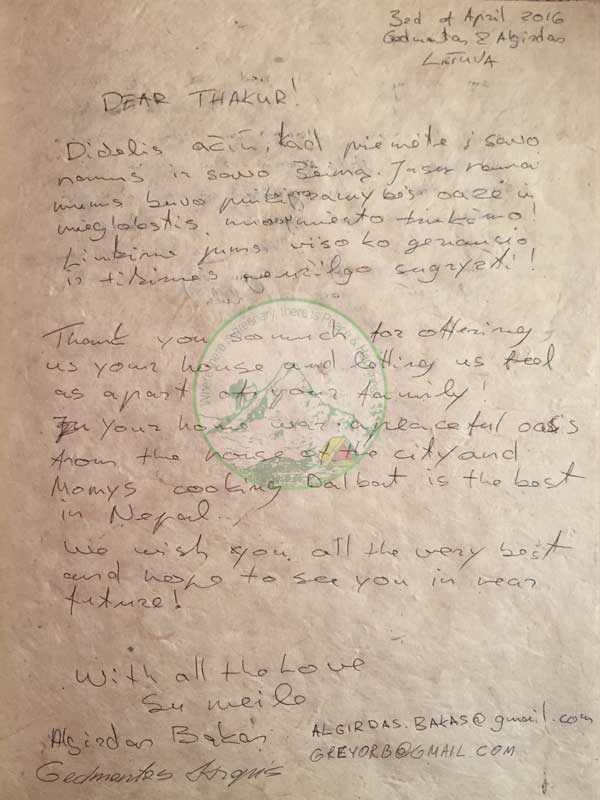 3rd of April 2016
Gedmentas & Algirdas
LIETUVA
DEAR THAKUR!
Didelis ačiū, kad priėmėte į savo
namus ir savo šeimą. Jūsų namai
mums buvo oazė ir
nuo miesto triukšmo!
Linkime jums viso ko geriausio
ir tikimės neužilgo sugryžti!
Thank you somuch for offering
us your house and letting us feel
as apart of your family!
Your home was a peaceful oasis
from the noise of the city and
Momys cooking Dalbat is the best
in Nepal...
We wish you all the very best
and hope to see you in near
future!
With all the Love
Su meile
Algirdas Bakas
Gedmentas
ALGIRDAS.BAKAS@gmail.com
GREYORB@GMAIL.COM
Where there is greenery, there is Peace &